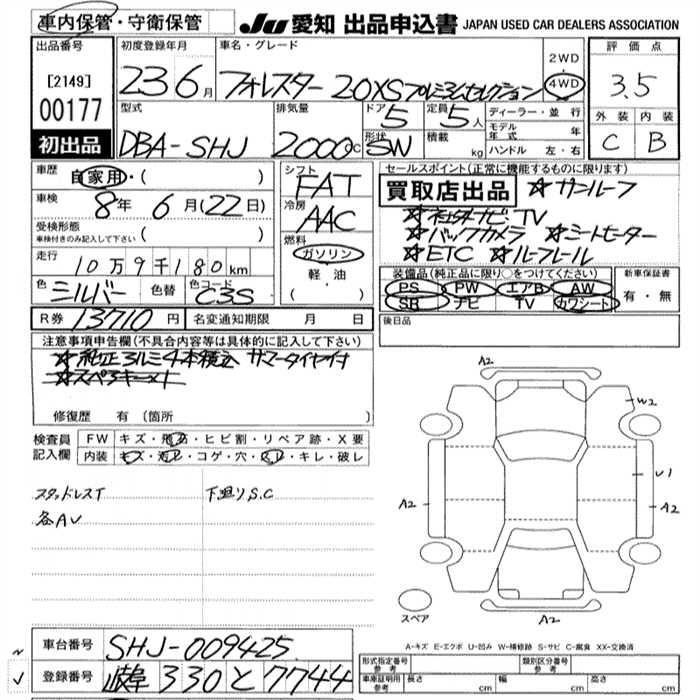 車内保管・守衛保管
JU 愛知 出品申込書 JAPAN USED CAR DEALERS ASSOCIATION
出品番号 初度登録年月 車名・グレード 評価点
[2149] 23 6月 フォレスター 20XSプレミアムセレクション 2WD 4WD 3.5
00177 型式 排気量 ドア 定員 ディーラー・並行 外装 内装
5 5人 モデル年式 年
初出品 DBA-SHJ 2000cc 形状 SW 積載 kg ハンドル 左・右 C B
車歴 自家用・( ) シフト セールスポイント(正常に機能するものに限ります)
FAT 買取店出品 ☆サンルーフ
車検 8年 6月(22日) 冷房 ☆社外ナビ TV
受検形態 AAC ☆バックカメラ ☆シートヒーター
車検付きのみ記入して下さい ( ) 燃料 ☆ETC ☆ルーフレール
走行 10万9千180km ガソリン 装備品(純正品に限り○をつけてください) 新車保証書
軽・油 PS PW エアB AW 有・無
色 シルバー 色替 色コード C3S ( ) SR ナビ TV カワシート
R券 13710円 名変通知期限 月 日 後日品
注意事項申告欄(不具合内容等は具体的に記入して下さい)
☆純正アルミ4本積込 サマータイヤ付
☆スペアキーメト
修復歴 有 (箇所 )
検査員 FW キズ・飛石・ヒビ割・リペア跡・X要
記入欄 内装 キズ・汚レ・コゲ・穴・スレ・キレ・破レ
スタッドレスT 下廻りS.C
各AU
A2
W2
U1
A2
A2
A2
スペア
A-キズ E-エクボ U-凹み W-補修跡 S-サビ C-腐食 XX-交換済
車台番号 SHJ-009425
登録番号 岐阜 330 と 7744
形式指定番号 参考 類別区分番号 参考
車庫証明用 参考 長さ cm 幅 cm 高さ cm